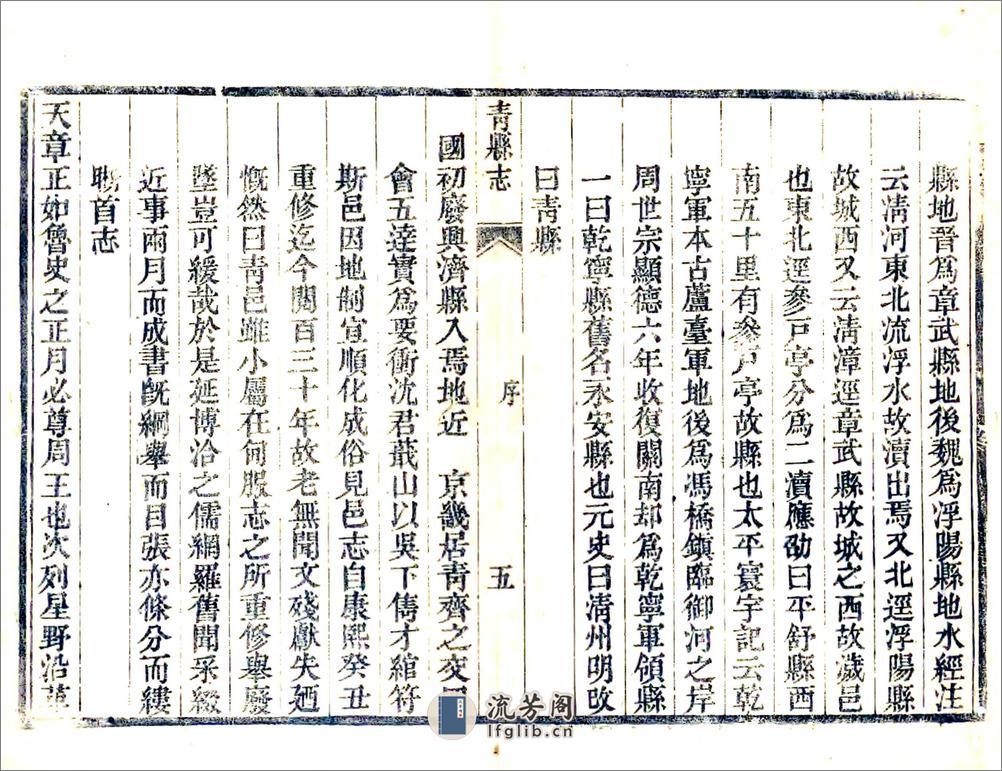 縣地晉爲章武縣地後魏爲浮陽縣地水經注
云淸河東北流浮水故瀆出焉又北逕浮陽縣
故城西又云淸漳逕章武縣故城之西故濊邑
也東北逕參戸亭分爲二瀆應劭曰平舒縣西
南五十里有參戸亭故縣也太平寰宇記云乾
寧軍本古蘆臺軍地後爲馮橋鎮臨御河之岸
周世宗顯德六年收復關南却爲乾寧軍領縣
一曰乾寧縣舊名永安縣也元史曰淸州明改
曰靑縣
靑縣志 序 五
國初廢興濟縣入焉地近 京畿居靑齊之交
會五達實爲要衝沈君蕺山以吳下儁才綰符
斯邑因地制宜順化成俗見邑志自康熙癸丑
重修迄今閱百三十年故老無聞文殘獻失廼
慨然曰靑邑雖小屬在甸服志之所重修舉廢
墜豈可緩哉於是延博洽之儒網羅舊聞采綴
近事兩月而成書旣綱舉而目張亦條分而縷
晣首志
天章正如魯史之正月必尊周王也次列星野沿革
流芳阁
lfglib.cn